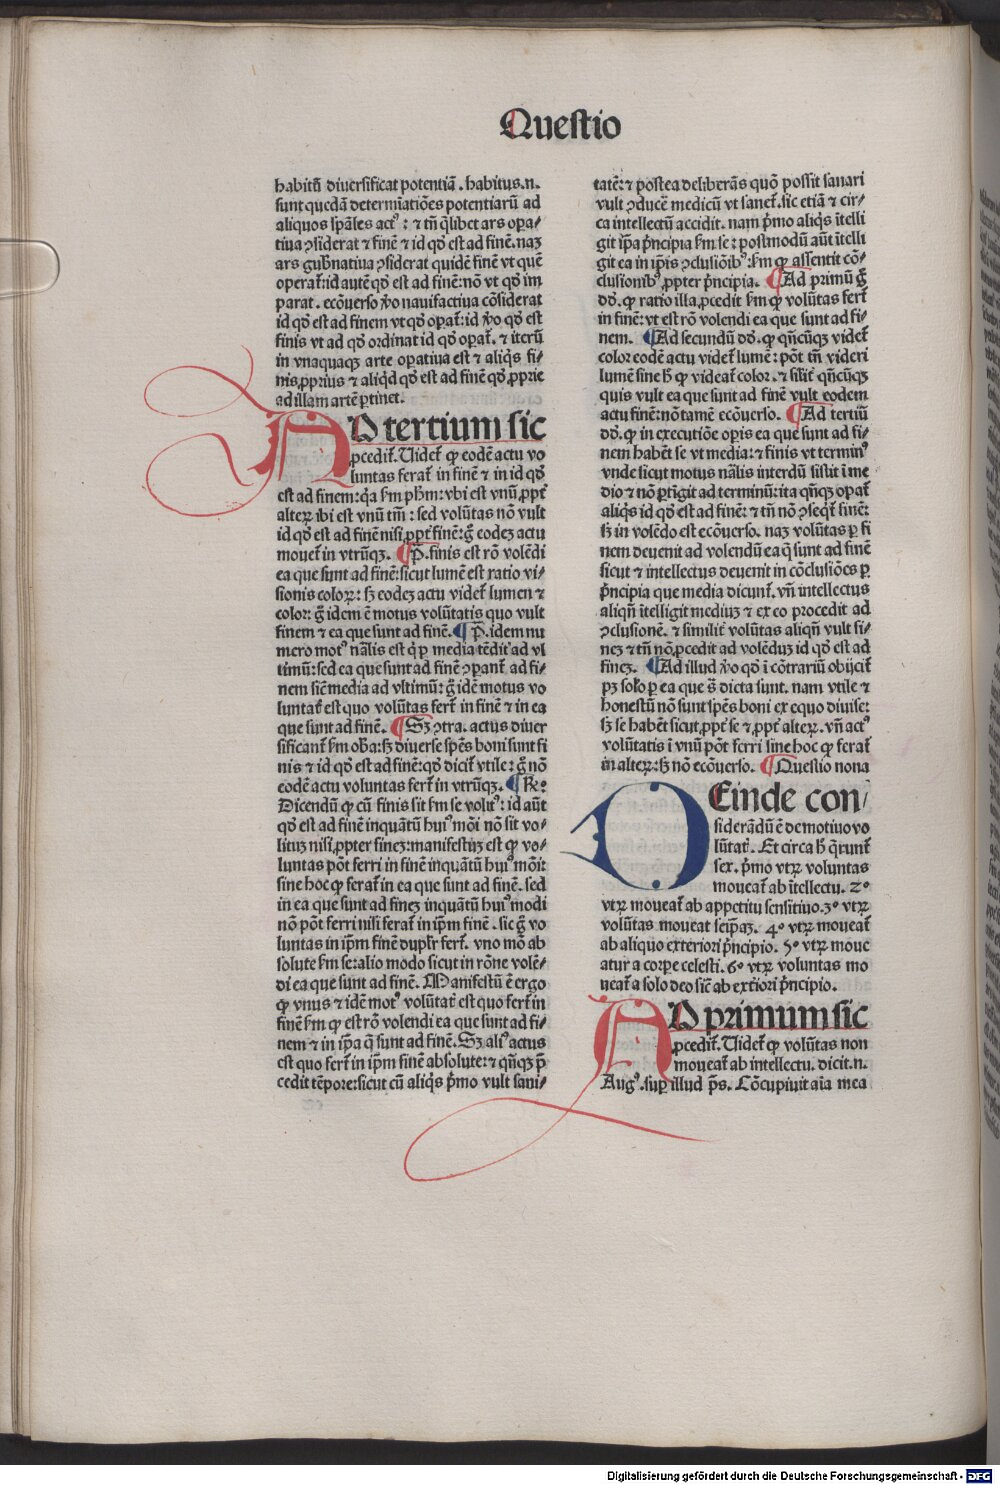 Questio
habitū diuersificat potentiā. habitus.n.
sunt quedā determīatiōes potentiarū ad
aliquos spāles actꝰ: ⁊ tñ q̄libet ars oꝑa/
tiua ꝯsiderat ⁊ finē ⁊ id qđ est ad finē. naꝫ
ars gubnatiua ꝯsiderat quidē finē vt quē
operat̄: id autē qđ est ad finē: nō vt qđ im
parat. ecōuerso ꝟo nauifactiua cōsiderat
id qđ est ad finem vt qđ oꝑat̄: id ꝟo qđ est
finis vt ad qđ ordinat id qđ oꝑat̄. ⁊ iterū
in vnaquaqꝫ arte oꝑatiua est ⁊ aliq̄s fi/
nis ꝓprius ⁊ aliqđ qđ est ad finē qđ ꝓprie
ad illam artē ꝑtinet.
AD tertium sic
ꝓcedit̄. Uidet̄ ꝙ eodē actu vo
luntas ferat̄ in finē ⁊ in id qđ
est ad finem: q̄a fm p̄hm: vbi est vnū ꝓpt̄
alteꝝ ibi est vnū tm̄: sed volūtas nō vult
id qđ est ad finē nisi ꝓpt̄ finē: g̊ eodeꝫ actu
mouet̄ in vtrūqꝫ. ¶ P̄. finis est rō volēdi
ea que sunt ad finē: sicut lumē est ratio vi/
sionis coloꝝ: sꝫ eodeꝫ actu videt̄ lumen ⁊
color: g̊ idem ē motus volūtatis quo vult
finem ⁊ ea que sunt ad finē. ¶ P̄. idem nu
mero motꝰ nālis est q̄ ꝑ media tēdit ad vl
timū: sed ea que sunt ad finē ꝯparant̄ ad fi/
nem sic̄ media ad vltimū: g̊ idē motus vo
luntat̄ est quo volūtas fert̄ in finē ⁊ in ea
que sunt ad finē. ¶ Sꝫ ꝯtra. actus diuer
sificant̄ fm ob̄a: sꝫ diuerse sp̄es boni sunt fi
nis ⁊ id qđ est ad finē: qđ dicit̄ vtile: g̊ nō
eodē actu voluntas fert̄ in vtrūqꝫ. ¶ R̄º
Dicendū ꝙ cū finis sit fm se volitꝰ: id aūt
qđ est ad finē inquātū huiꝰmōi nō sit vo/
lituꝫ nisi ꝓpter fineꝫ: manifestuꝫ est ꝙ vo/
luntas pōt ferri in finē inquātū huiꝰ mōi:
sine hoc ꝙ ferat̄ in ea que sunt ad finē. sed
in ea que sunt ad fineꝫ inquātū huiꝰ modi
nō pōt ferri nisi ferat̄ in ip̄m finē. sic g̊ vo
luntas in ip̄m finē duplr̄ fert̄. vno mō ab
solute fm se: alio modo sicut in rōne volē/
di ea que sunt ad finē. Manifestū ē ergo
ꝙ vnus ⁊ idē motꝰ volūtat̄ est quo fert̄ in
finē fm ꝙ est rō volendi ea que sunt ad fi/
nem ⁊ in ip̄a q̄ sunt ad finē. Sꝫ aliꝰ actus
est quo fert̄ in ip̄m finē absolute: ⁊ qn̄qꝫ p̄
cedit tēpore: sicut cū aliq̄s p̄mo vult sani/
tatē: ⁊ postea deliberās quō possit sanari
vult ꝯducē medicū vt sanet̄. sic etiā ⁊ cir/
ca intellectū accidit. nam p̄mo aliq̄s ītelli
git ip̄a p̄ncipia fm se: postmodū aūt ītelli
git ea in ip̄is ꝯclusiōibꝰ: fm ꝙ assentit cō/
clusionibꝰ ꝓpter p̄ncipia. ¶ Ad primū g̊
đđ. ꝙ ratio illa ꝓcedit fm ꝙ volūtas fert̄
in finē: vt est rō volendi ea que sunt ad fi/
nem. ¶ Ad secundū đđ. ꝙ qn̄cūqꝫ videt̄
color eodē actu videt̄ lumē: pōt tñ videri
lumē sine h̄ ꝙ videat̄ color. ⁊ silit̄ qn̄cūqꝫ
quis vult ea que sunt ad finē vult eodem
actu finē: nō tamē ecōuerso. ¶ Ad tertiū
đđ. ꝙ in executiōe oꝑis ea que sunt ad fi/
nem habēt se vt media: ⁊ finis vt terminꝰ
vnde sicut motus nālis interdū sistit ī me
dio ⁊ nō ꝑtīgit ad terminū: ita qn̄qꝫ oꝑat̄
aliq̄s id qđ est ad finē: ⁊ tñ nō ꝯseqt̄ finē:
sꝫ in volēdo est ecōuerso. naꝫ volūtas ꝑ fi
nem deuenit ad volendū ea q̄ sunt ad finē
sicut ⁊ intellectus deuenit in cōclusiōes ꝑ
p̄ncipia que media dicunt̄. vn̄ intellectus
aliqn̄ ītelligit mediuꝫ ⁊ ex eo procedit ad
ꝯclusionē. ⁊ similit̄ volūtas aliqn̄ vult fi/
neꝫ ⁊ tñ nō ꝓcedit ad volēduꝫ id qđ est ad
fineꝫ. ¶ Ad illud ꝟo qđ ī cōtrariū obijcit̄
pꝫ solo ꝑ ea que s̄ dicta sunt. nam vtile ⁊
honestū nō sunt sp̄es boni ex equo diuise:
sꝫ se habēt sicut ꝓpt̄ se ⁊ ꝓpt̄ alteꝝ. vn̄ actꝰ
volūtatis ī vnū pōt ferri sine hoc ꝙ ferat̄
in alteꝝ: sꝫ nō ecōuerso. ¶ Questio nona
DEinde con/
siderādū ē de motiuo vo
lūtat̄. Et circa h̄ q̄runt̄
sex. p̄mo vtꝝ voluntas
moueat̄ ab ītellectu. 2º
vtꝝ moueat̄ ab appetitu sensitiuo. 3º vtꝝ
volūtas moueat seip̄aꝫ. 4º vtꝝ moueat̄
ab aliquo exteriori p̄ncipio. 5º vtꝝ moue
atur a corꝑe celesti. 6º vtꝝ voluntas mo
ueat̄ a solo deo sic̄ ab ext̄iori p̄ncipio.
AD primum sic
ꝓcedit̄. Uidet̄ ꝙ volūtas non
moueat̄ ab intellectu. dicit.n.
Augꝰ. suꝑ illud p̄s. Cōcupiuit aīa mea
Digitalisierung gefördert durch die Deutsche Forschungsgemeinschaft - DFG